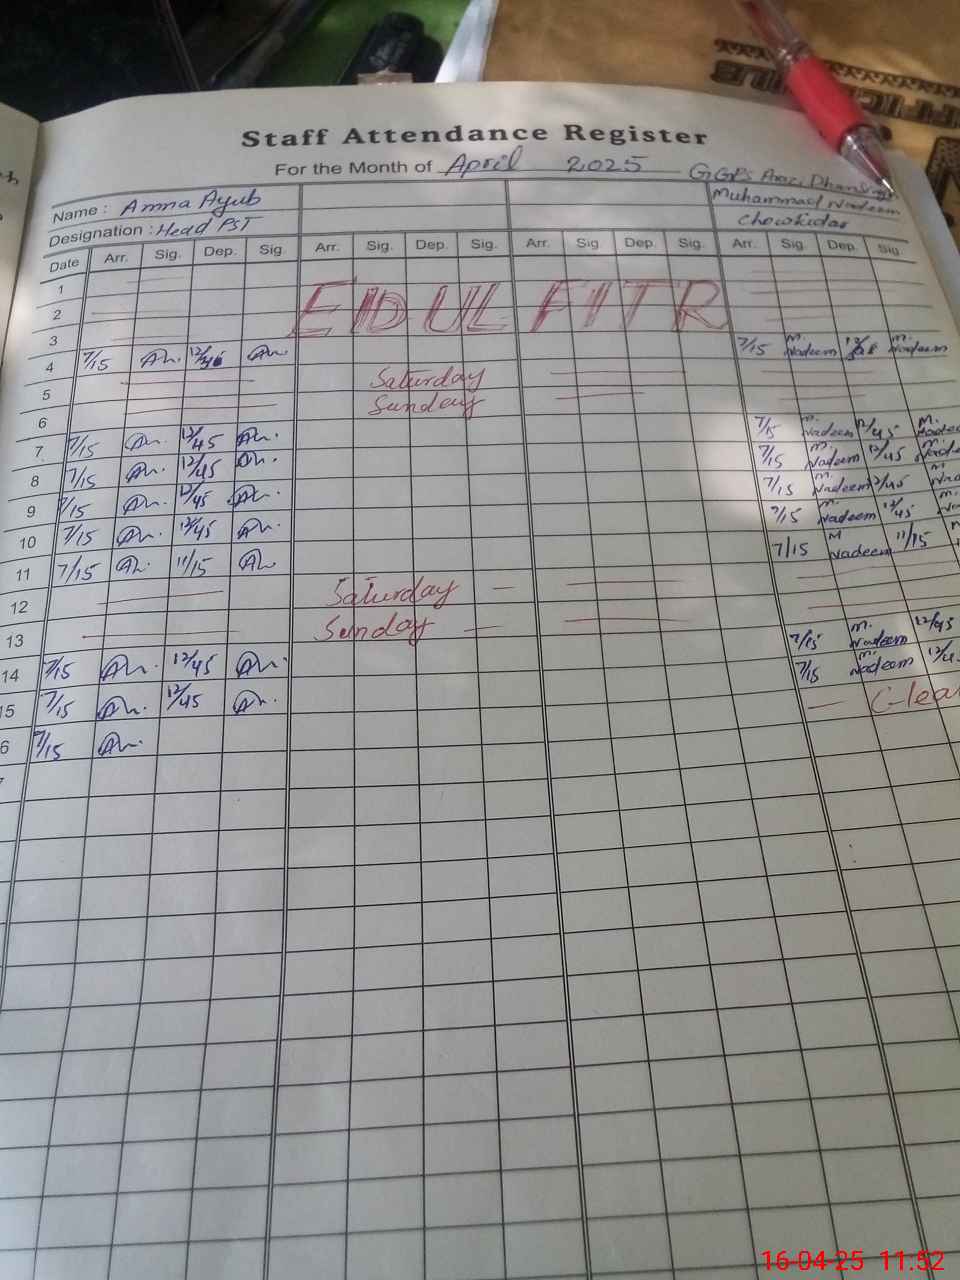 Staff Attendance Register
For the Month of April 2025
Name : Amna Ayub Muhammad Nadeem
Designation : Head PST Chowkidar
Date Arr. Sig. Dep. Sig. Arr. Sig. Dep. Sig. Arr. Sig. Dep. Sig. Arr. Sig. Dep. Sig.
1
2 EID UL FITR
3
4 7/15 12/45 7/15 M. Nadeem M. Nadeem
5 Saturday
6 Sunday
7 7/15 12/45 7/15 M. Nadeem 12/45 M.
8 7/15 12/45 7/15 M. Nadeem 12/45 M.
9 7/15 12/45 7/15 M. Nadeem 12/45 M.
10 7/15 12/45 7/15 M. Nadeem 12/45 M.
11 7/15 11/15 7/15 M Nadeem 11/15 M
12 Saturday
13 Sunday
14 7/15 12/45 7/15 M. Nadeem 12/45
15 7/15 12/45 7/15 M. Nadeem
6 7/15
16-04-25 11.52